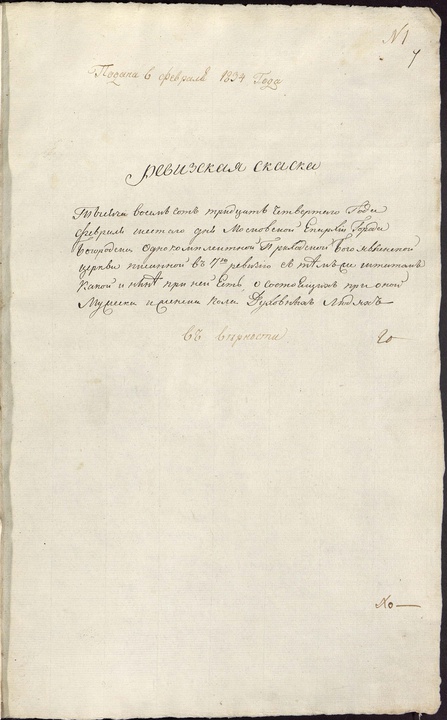 №1
7
Подана 6 февраля 1834 Года
Ревизская скаска
Тысеча восемь сотъ тридцать четвертаго Года
февраля шестаго дня Московской Епархіи Города
Богородска однокомплектной Градской Богоявленской
церкви писанной въ 7ю ревизію съ тѣмъ же штатомъ
какой и нынѣ при ней есть, о состоящихъ при оной
Мужеска и женска пола Духовныхъ Людяхъ
въ вѣрности